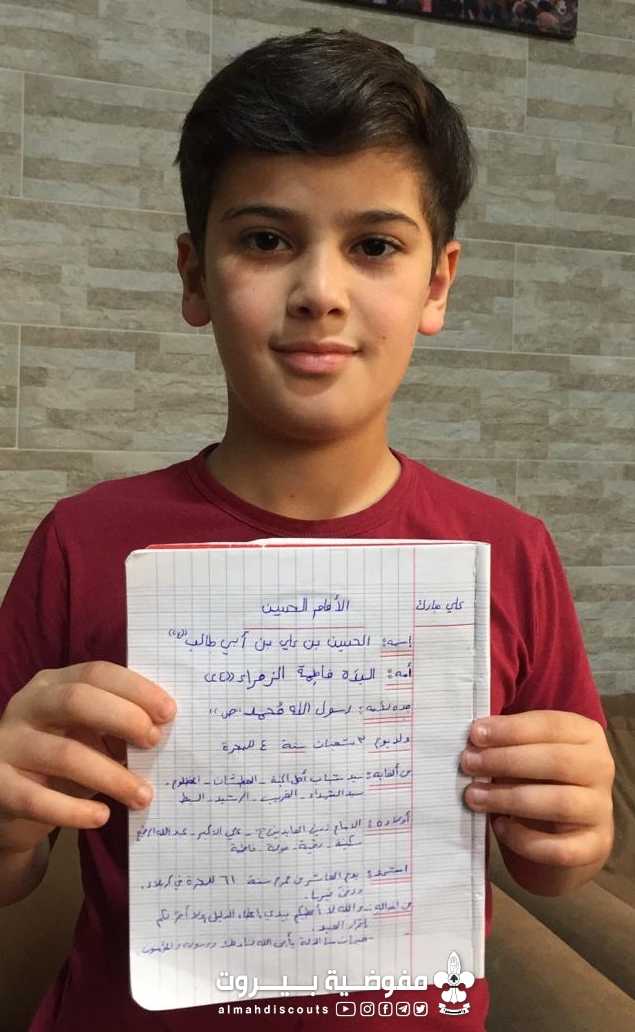 علي مبارك
الأمام الحسين
إسمه: الحسين بن علي بن أبي طالب "(ع)"
أمه: السيدة فاطمة الزهراء "(ع)"
جده لأمه: رسول الله محمد "ص"
ولد يوم ٣ شعبان سنة ٤ للهجرة
من ألقابه: سيد شباب أهل الجنة - العطشان - المظلوم -
سيد الشهداء - الغريب - الرشيد - السبط
أولاده: الامام زين العابدين "ع" - علي الاكبر - عبدالله الرضيع
سكينة - رقية - خولة - فاطمة
استشهد: يوم العاشر من محرم سنة ٦١ للهجرة في كربلاء.
ودفن فيها.
من أقواله: - والله لا أعطيكم بيدي إعطاء الذليل ولا أقر لكم
إقرار العبيد.
- هيهات منا الذلة يأبى الله لنا ذلك ورسوله والمؤمنون
مفوضية بيروت
almahdiscouts